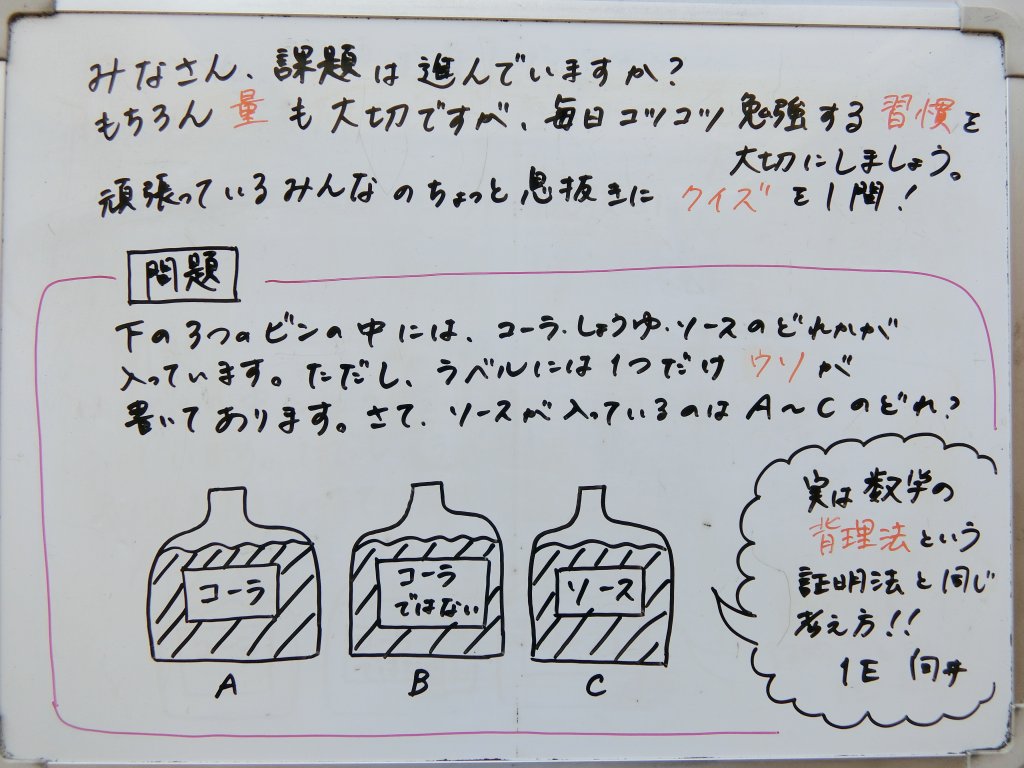 みなさん、課題は進んでいますか?
もちろん量も大切ですが、毎日コツコツ勉強する習慣を
大切にしましょう。
頑張っているみんなのちょっと息抜きにクイズを1問!
問題
下の3つのビンの中には、コーラ・しょうゆ・ソースのどれかが
入っています。ただし、ラベルには1つだけウソが
書いてあります。さて、ソースが入っているのはA〜Cのどれ?
コーラ
コーラ
ではない
ソース
A
B
C
実は数学の
背理法という
証明法と同じ
考え方!!
1E 向井